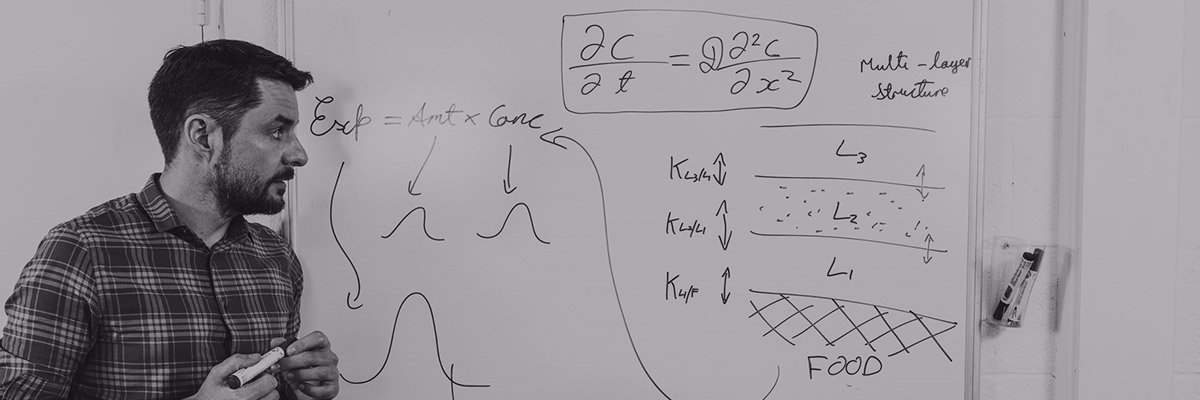 ∂C/∂t = D ∂²C/∂x²
Multi-layer
structure
Exp = Amt × Conc
L₃
K L₃/L₁
L₂
K L₂/L₁
L₁
K L₁/F
FOOD